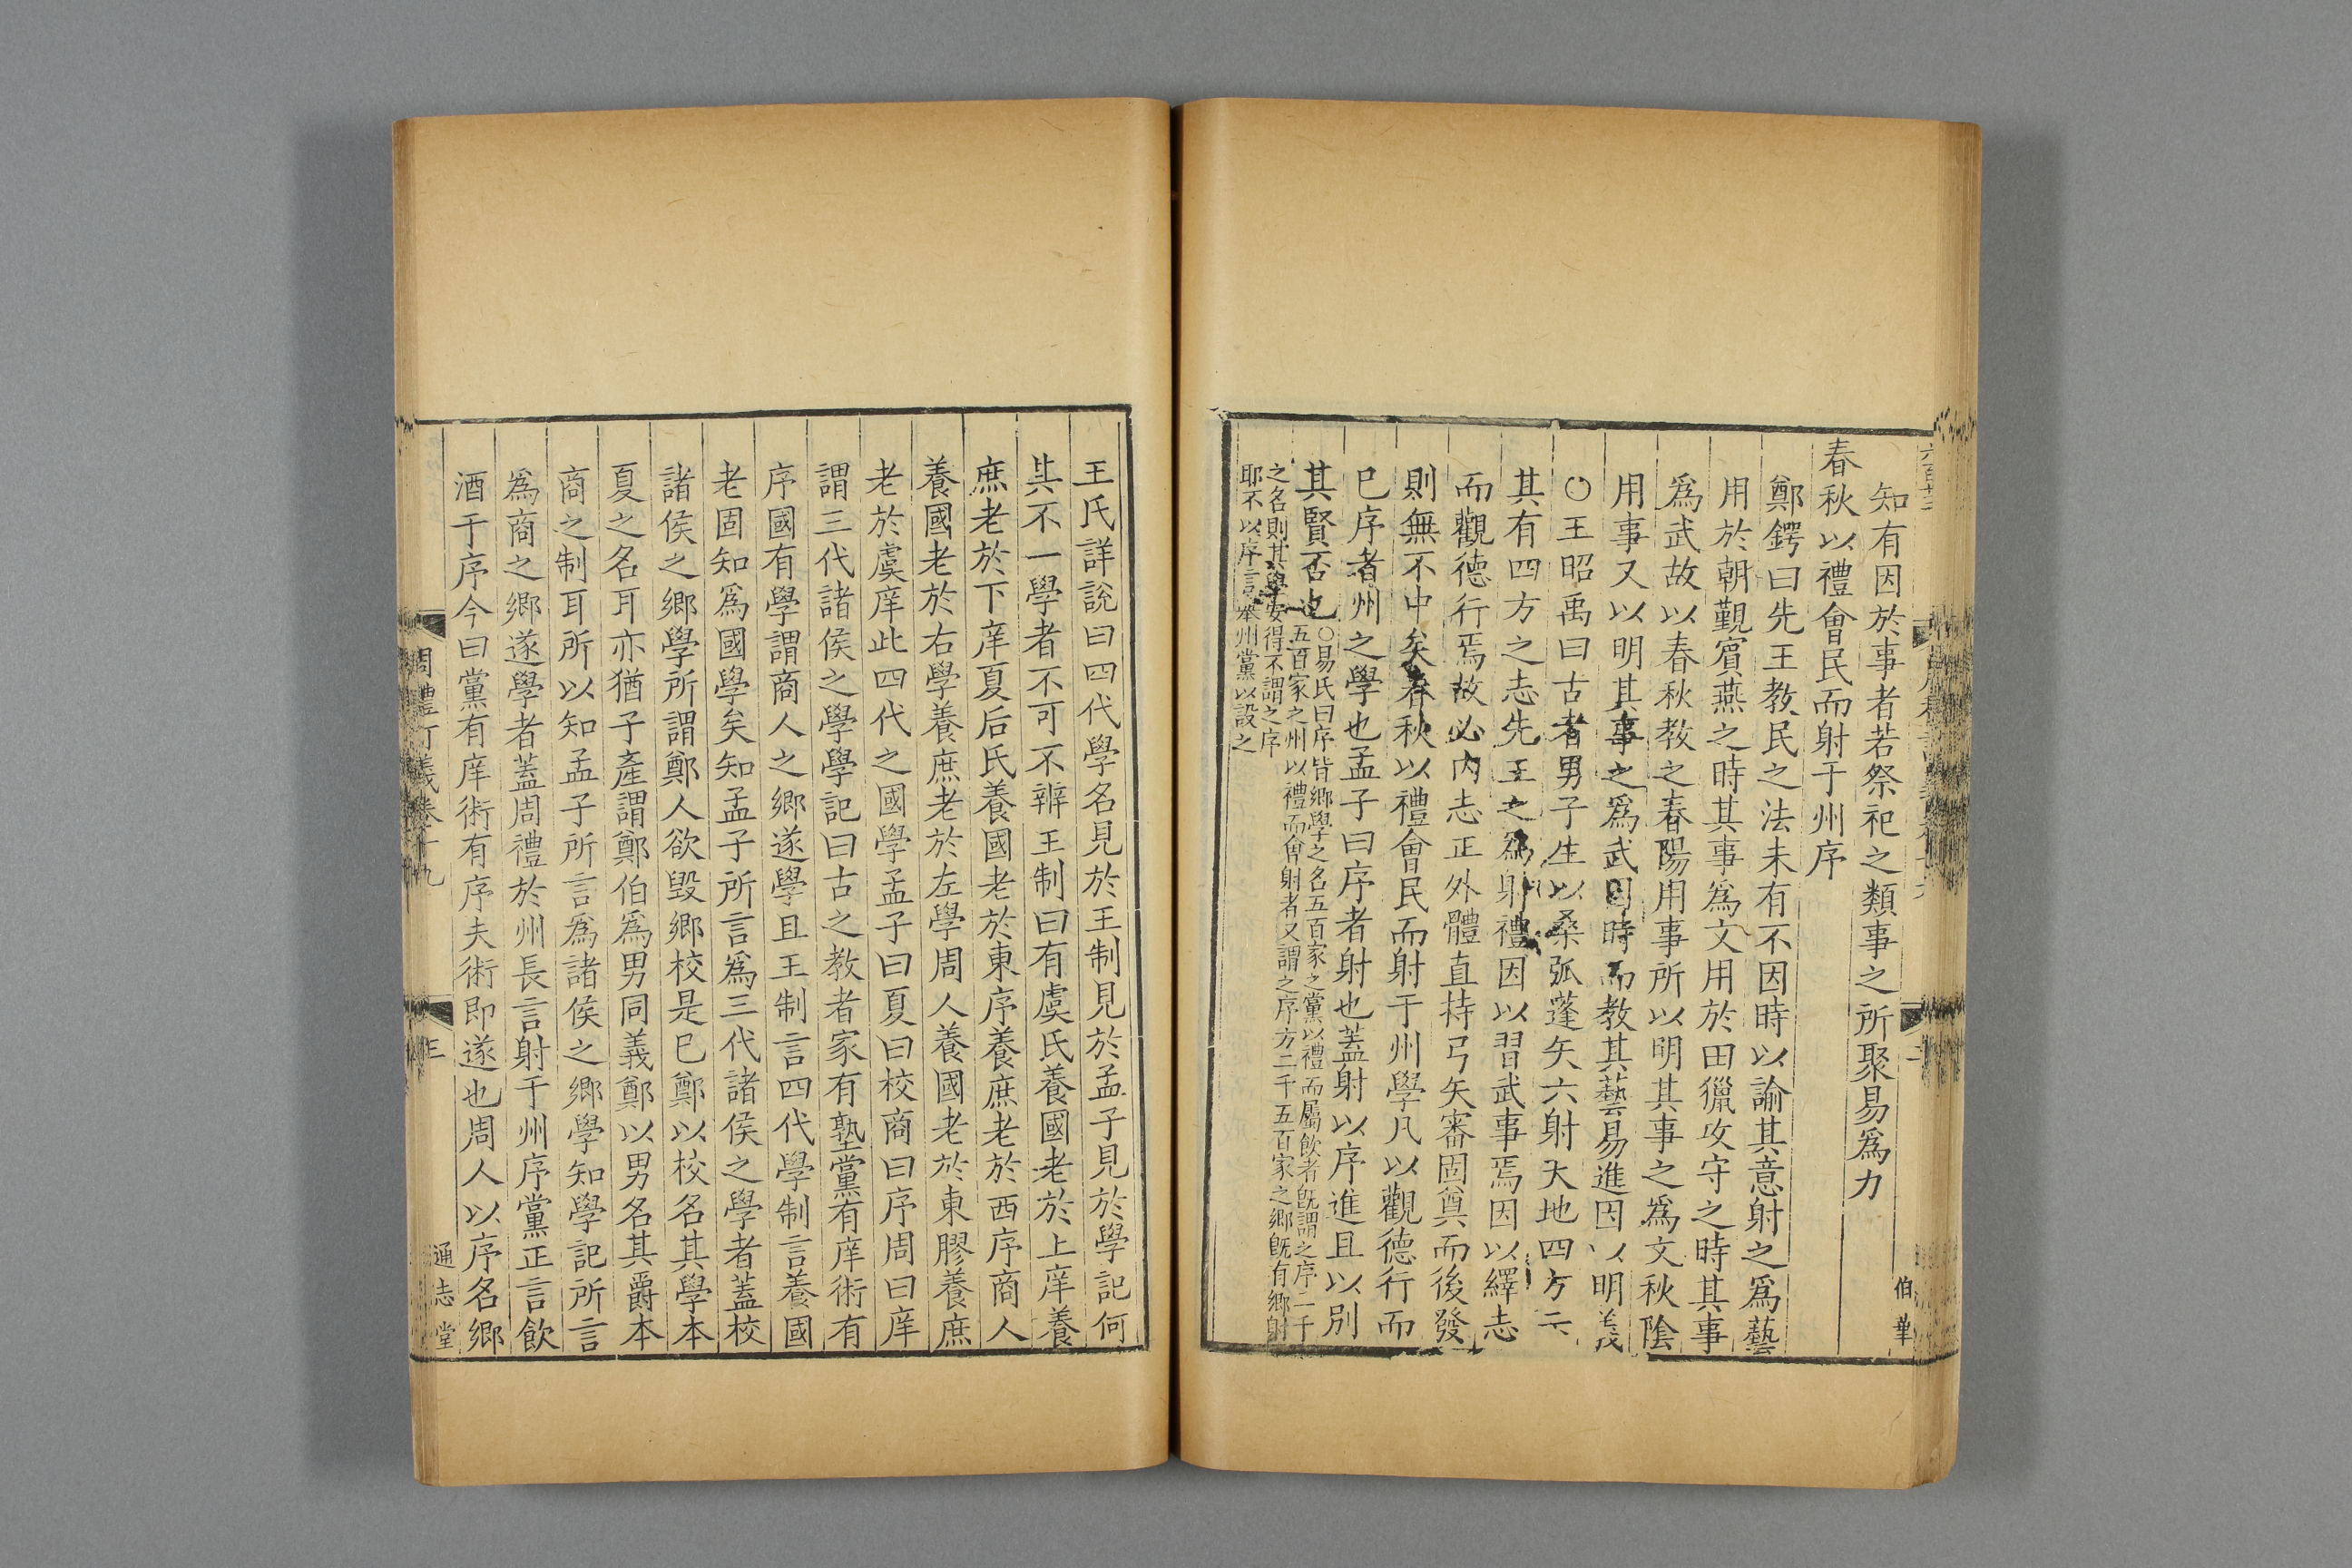 知有因於事者若祭祀之類事之所聚易爲力
春秋以禮會民而射于州序
鄭鍔曰先王教民之法未有不因時以諭其意射之爲藝
用於朝覲賓燕之時其事爲文用於田獵攻守之時其事
爲武故以春秋教之春陽用事所以明其事之爲文秋陰
用事又以明其事之爲武因時而教其藝易進因以明義
○王昭禹曰古者男子生以桑弧蓬矢六射天地四方示
其有四方之志先王之爲射禮因以習武事焉因以繹志
而觀德行焉故必内志正外體直持弓矢審固奠而後發
則無不中矣春秋以禮會民而射于州學凡以觀德行而
已序者州之學也孟子曰序者射也蓋射以序進且以別
其賢否也○易氏曰序皆鄉學之名五百家之黨以禮而屬飲者旣謂之序二千
五百家之州以禮而會射者又謂之序方二千五百家之鄉旣有鄉射
之名則其學安得不謂之序
耶不以序言舉州黨以設之
伯華
王氏詳說曰四代學名見於王制見於孟子見於學記何
其不一學者不可不辨王制曰有虞氏養國老於上庠養
庶老於下庠夏后氏養國老於東序養庶老於西序商人
養國老於右學養庶老於左學周人養國老於東膠養庶
老於虞庠此四代之國學孟子曰夏曰校商曰序周曰庠
謂三代諸侯之學學記曰古之教者家有塾黨有庠術有
序國有學謂商人之鄉遂學且王制言四代學制言養國
老固知爲國學矣知孟子所言爲三代諸侯之學者蓋校
諸侯之鄉學所謂鄭人欲毀鄉校是已鄭以校名其學本
夏之名耳亦猶子產謂鄭伯爲男同義鄭以男名其爵本
商之制耳所以知孟子所言爲諸侯之鄉學知學記所言
爲商之鄉遂學者蓋周禮於州長言射于州序黨正言飲
酒于序今曰黨有庠術有序夫術即遂也周人以序名鄉
周禮訂義卷十九
三
通志堂